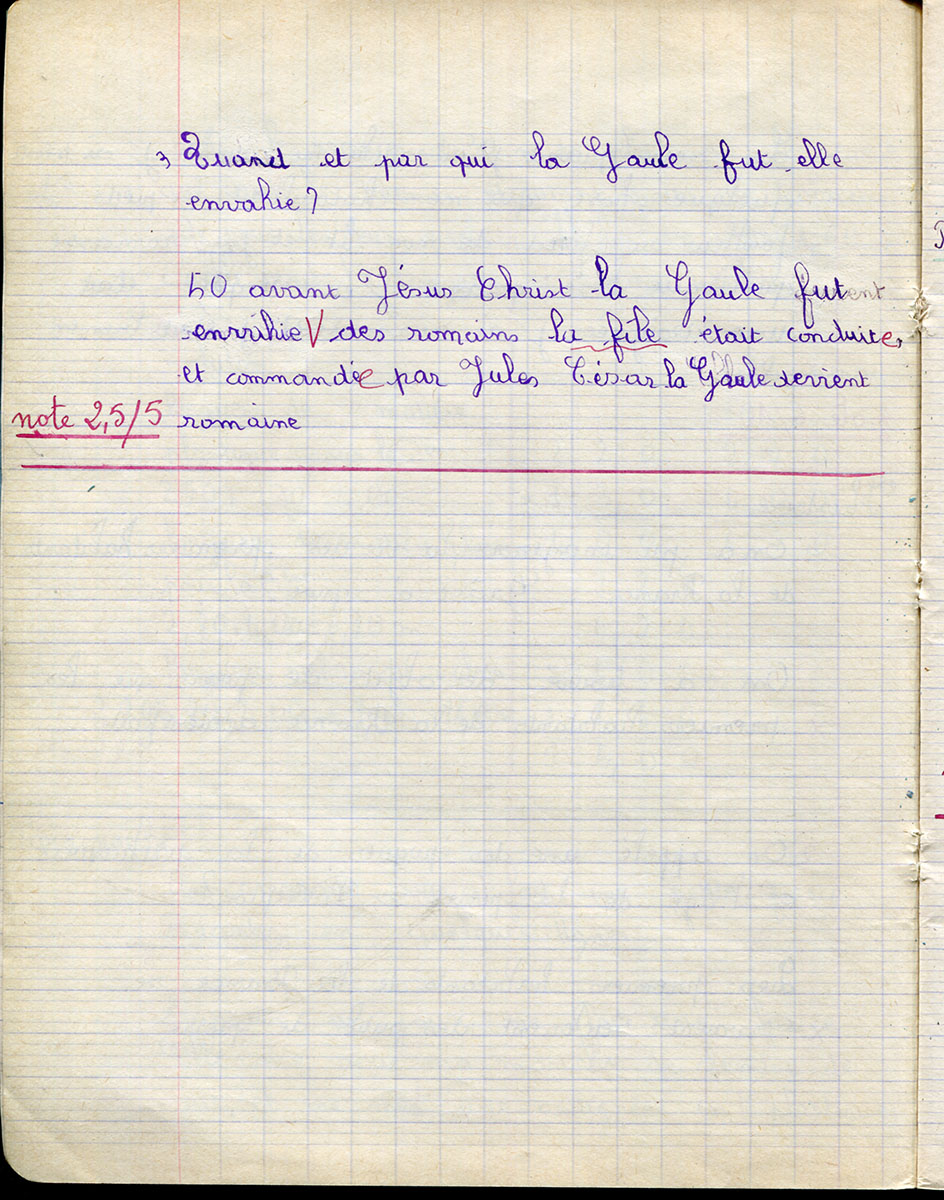 3 Quand et par qui la Gaule fut-elle
envahie?
50 avant Jésus Christ la Gaule furent
envahie V des romains la file était conduite,
et commandée par Jules César la Gaule devient
note 2,5/5 romaine